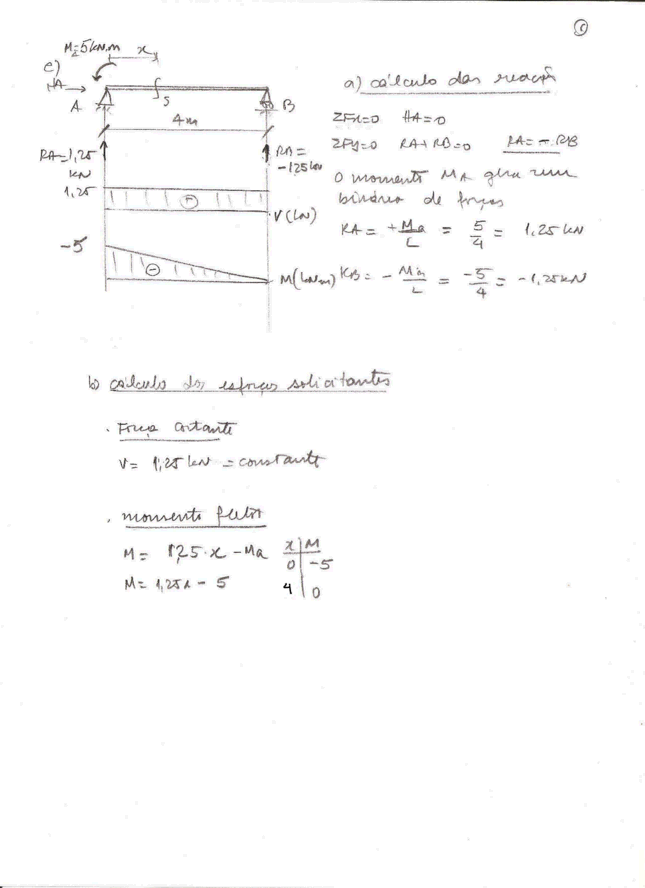 6
M=5kN.m x
e)
HA
A S B
4m
RA=1,25 kN
RB= -1,25 kN
1,25
+
V(kN)
-5
-
M(kN.m)
a) cálculo das reação
ΣFx=0 HA=0
ΣFy=0 RA+RB=0 RA=-RB
O momento MA gera um
binário de forças
RA= +Ma/L = 5/4 = 1,25 kN
RB= - /L = -5/4 = -1,25 kN
b) cálculo dos esforços solicitantes
. Força cortante
V= 1,25 kN = constante
. momento fletor
M= 1,25.x - Ma
M= 1,25x - 5
x | M
0 | -5
4 | 0